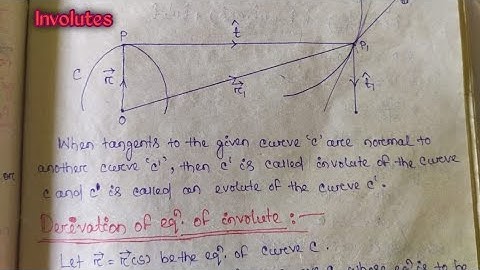 Involutes
P
t̂
P₁
C
r⃗
r⃗₁
t̂₁
O
When tangents to the given curve 'c' are normal to
another curve 'c'', then c' is called involute of the curve
c and c' is called an evolute of the curve c'.
Derivation of eqⁿ. of involute :—
Let r⃗ = r⃗(s) be the eqⁿ. of curve C.
whose eqⁿ is to be